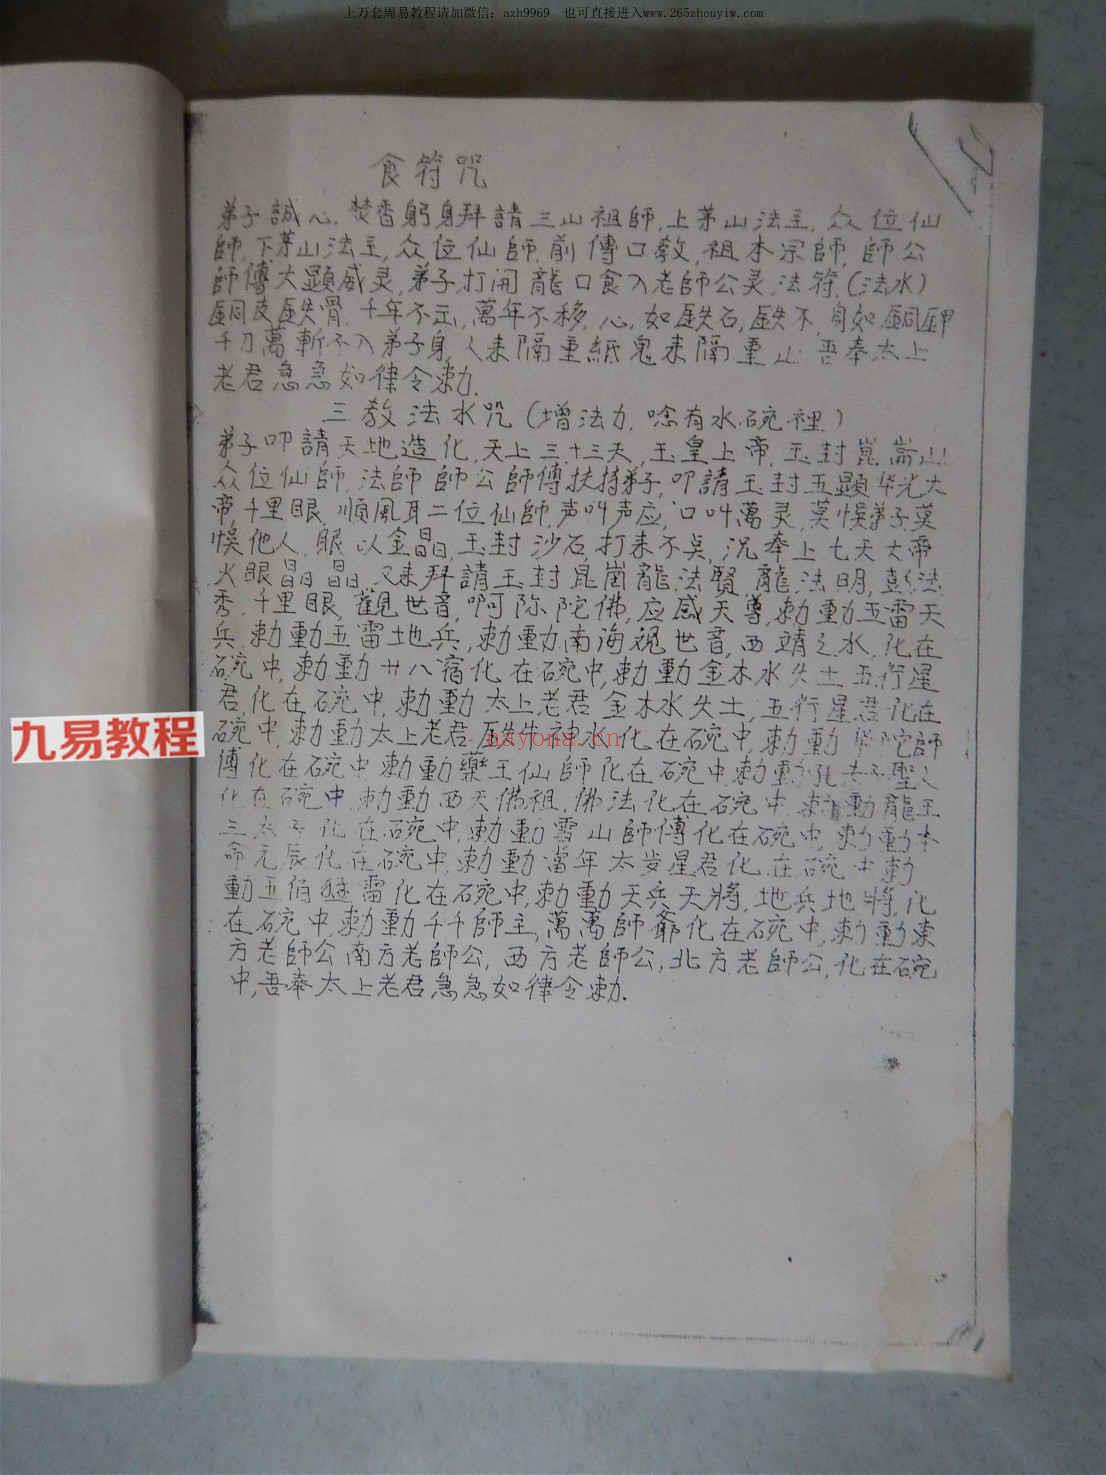 上万套周易教程请加微信：azh9969 也可直接进入www.265zhouyiw.com
食符咒
弟子誠心,焚香躬身拜請三山祖師,上茅山法主,众位仙
師,下茅山法主,众位仙師,前傳口教,祖本宗師,師公
師傅大顯威灵,弟子打開龍口食入老師公灵法符,(法水)
銅皮鉄骨,千年不,萬年不移,心,如鉄石,鉄不,身如銅甲
千刀萬斬不入弟子身,人来隔重紙鬼来隔重山吾奉太上
老君急急如律令勅.
三教法水咒(增法力,唸有水碗裡)
弟子叩請天地造化,天上三十三天,玉皇上帝,玉封崑崙山
众位仙師,法師師公師傅扶持弟子,叩請玉封五顯华光大
帝,千里眼,順風耳二位仙師,声叫声应,口叫萬灵,莫悞弟子莫
悞他人,眼以金晶,玉封沙石,打未不,况奉上七天大帝
火眼晶晶,又来拜請玉封崑崗龍法賢龍法明,彭法
秀,千里眼,觀世音,啊弥陀佛,应感天尊,勅動五雷天
兵,勅動五雷地兵,勅動南海覌世音,西靖之水,化在
碗中,勅動廿八宿化在碗中,勅動金木水失土五行星
君,化在碗中,勅動太上老君金木水失土,五行星君化在
碗中,勅動太上老君鉄牛神水化在碗中,勅動陀師
傅化在碗中,勅動藥王仙師化在碗中,勅動孔夫子聖人
化在碗中,勅動西天佛祖,佛法化在碗中,勅動龍王
三太子化在碗中,勅動雪山師傅化在碗中,勅動本
命元辰化在碗中,勅動當年太岁星君化在碗中勅
動五佰雷化在碗中,勅動天兵天將,地兵地將,化
在碗中,勅動千千師主,萬萬師爺化在碗中,勅動東
方老師公南方老師公,西方老師公,北方老師公,化在碗
中,吾奉太上老君急急如律令勅.
九易教程
nayona.cn